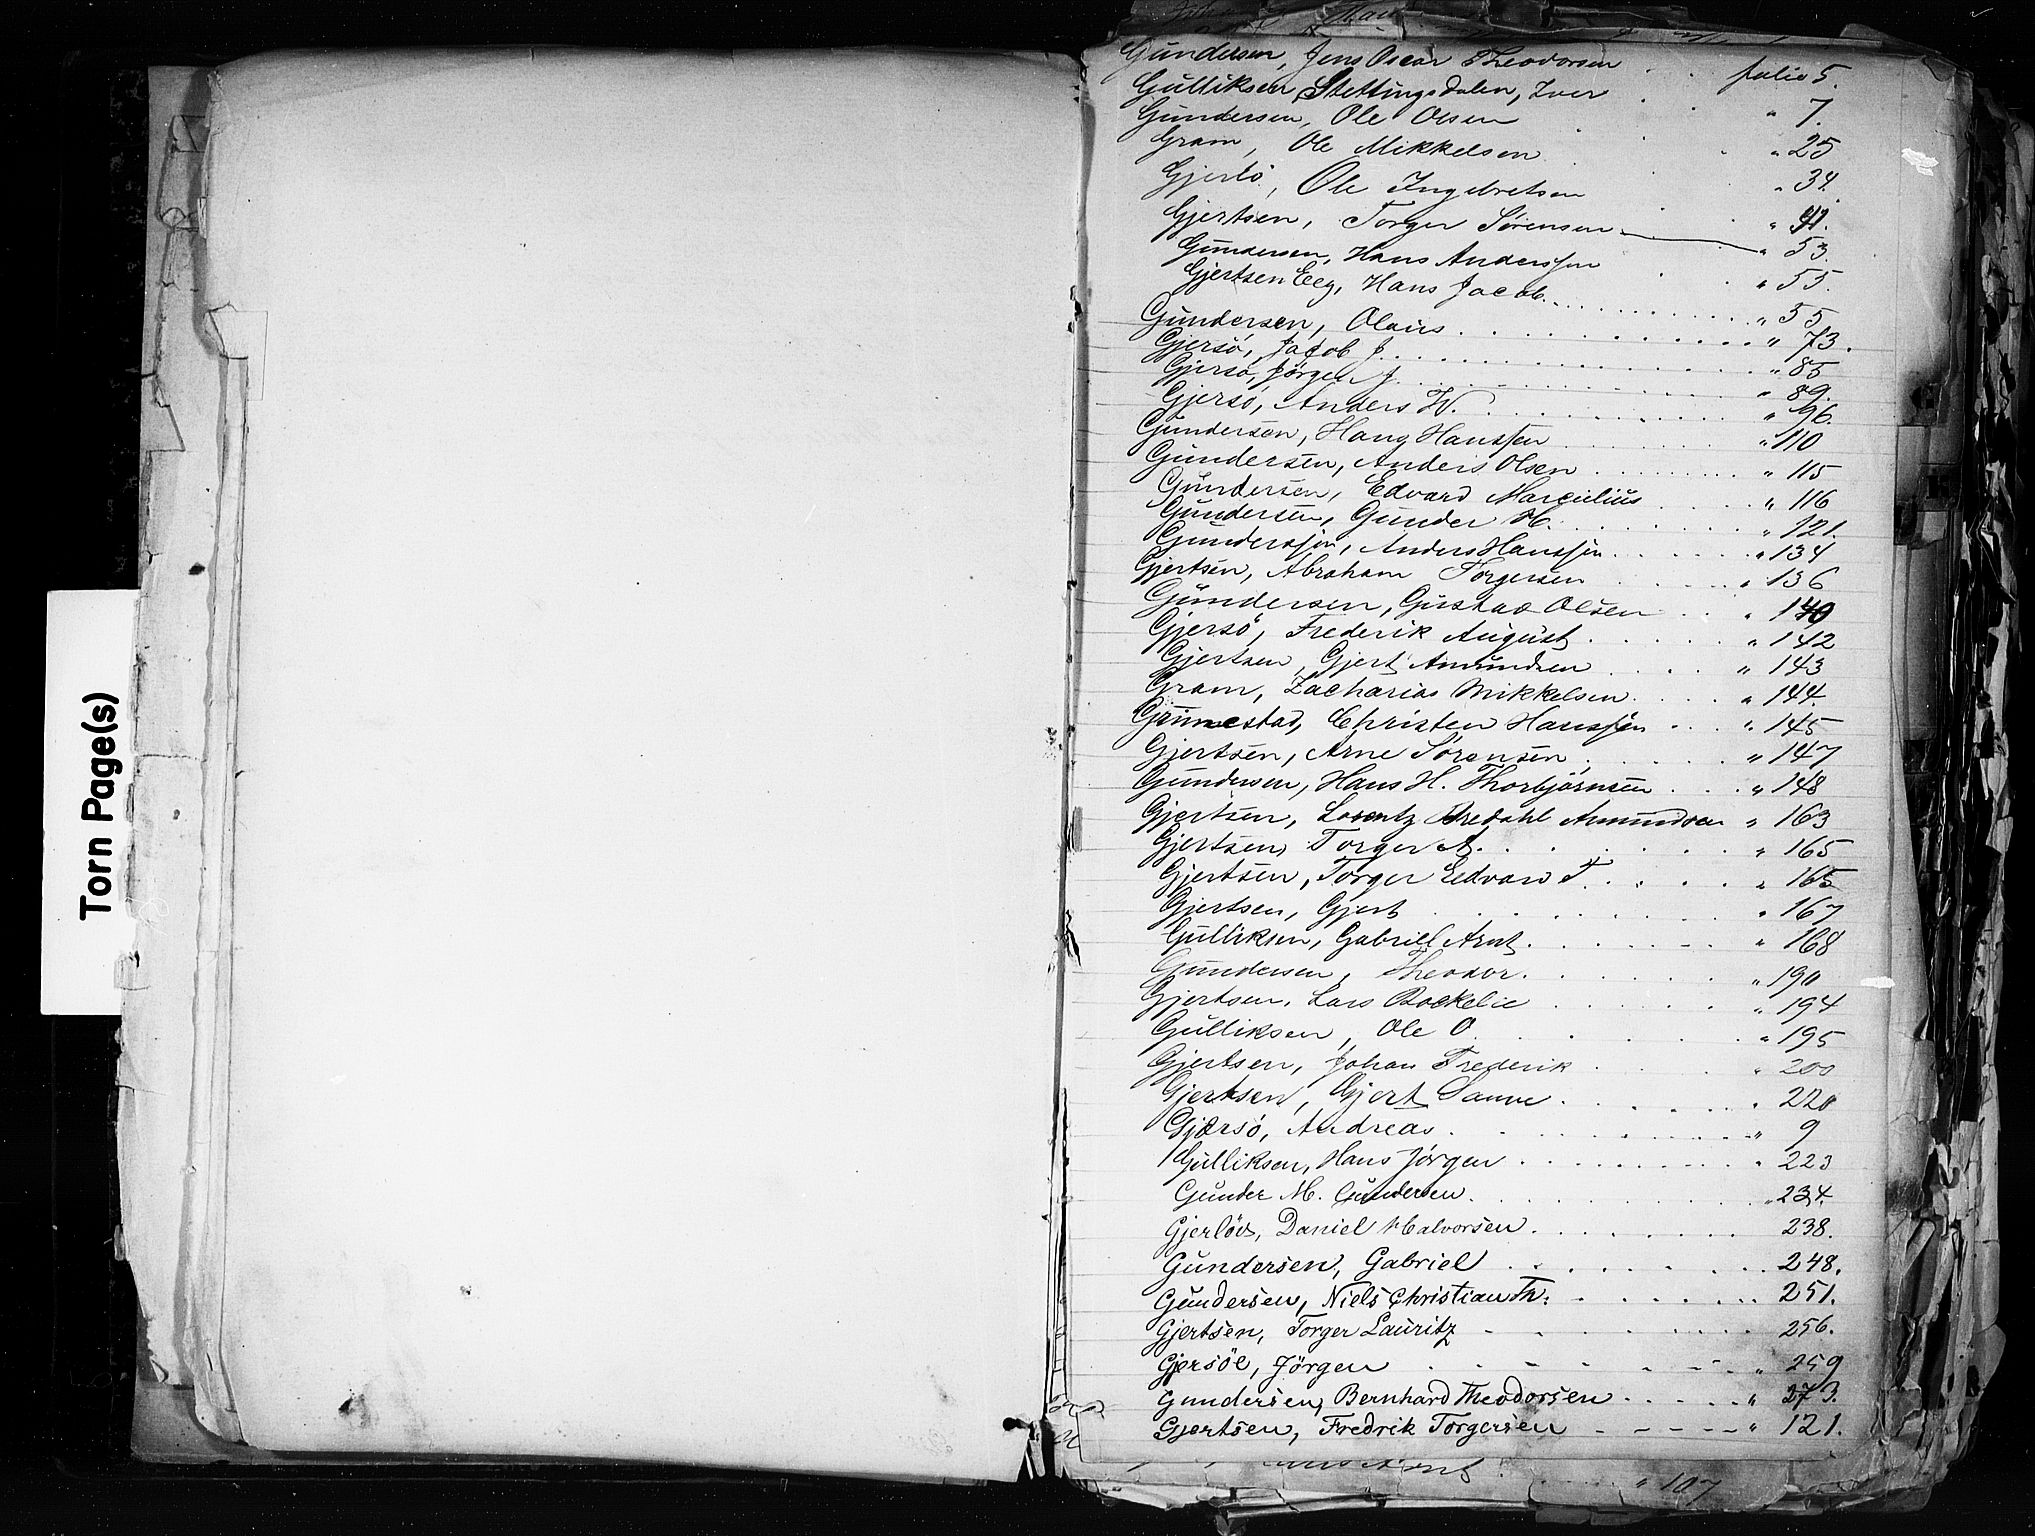 Torn Page(s)
Gundersen, Jens Oscar Theodorsen . . folio 5.
Gulliksen Stettingsdalen, Iver . " 7.
Gundersen, Ole Olsen . " 25
Gram, Ole Mikkelsen . " 34.
Gjerlö, Ole Ingebretsen . " 41.
Gjertsen, Torger Sörensen " 53.
Gundersen, Hans Anderssen " 55.
Gjertsen Eeg, Hans Jacob " 55
Gundersen, Olaus " 73.
Gjersö, Jacob J. " 85
Gjersö, Jörgen J. " 89.
Gjersö, Anders W. " 96.
Gundersen, Hans Hanssen " 110
Gundersen, Anders Olsen " 115
Gundersen, Edvard Marcilius " 116
Gundersen, Gunder H. " 121.
Gunderssen, Anders Hanssen " 134
Gjertsen, Abraham Torgersen " 136
Gundersen, Gustav Olsen " 140
Gjersö, Frederik August " 142
Gjertsen, Gjert Amundsen " 143
Gram, Zacharias Mikkelsen " 144.
Grimestad, Christen Hanssen " 145
Gjertsen, Arne Sörensen " 147
Gundersen, Hans H. Thorbjörnsen " 148
Gjertsen, Lorentz Bredahl Amundsen " 163
Gjertsen, Torger A. " 165
Gjertsen, Torger Edvard T. " 165
Gjertsen, Gjert " 167
Gulliksen, Gabriel Arnt. " 168
Gundersen, Theodor. " 190
Gjertsen, Lars Boekelie " 194
Gulliksen, Ole O. " 195
Gjertsen, Johan Frederik " 200
Gjertsen, Gjert Sanne " 220
Gjersö, Andreas " 9
Gulliksen, Hans Jörgen " 223
Gunder M. Gundersen " 234.
Gjerlöv, Daniel Halvorsen 238.
Gundersen, Gabriel 248.
Gundersen, Niels Christian Th: 251.
Gjertsen, Torger Lauritz 256.
Gjersöe, Jörgen " 259
Gundersen, Bernhard Theodorsen " 273.
Gjertsen, Fredrik Torgersen " 121.
" 107